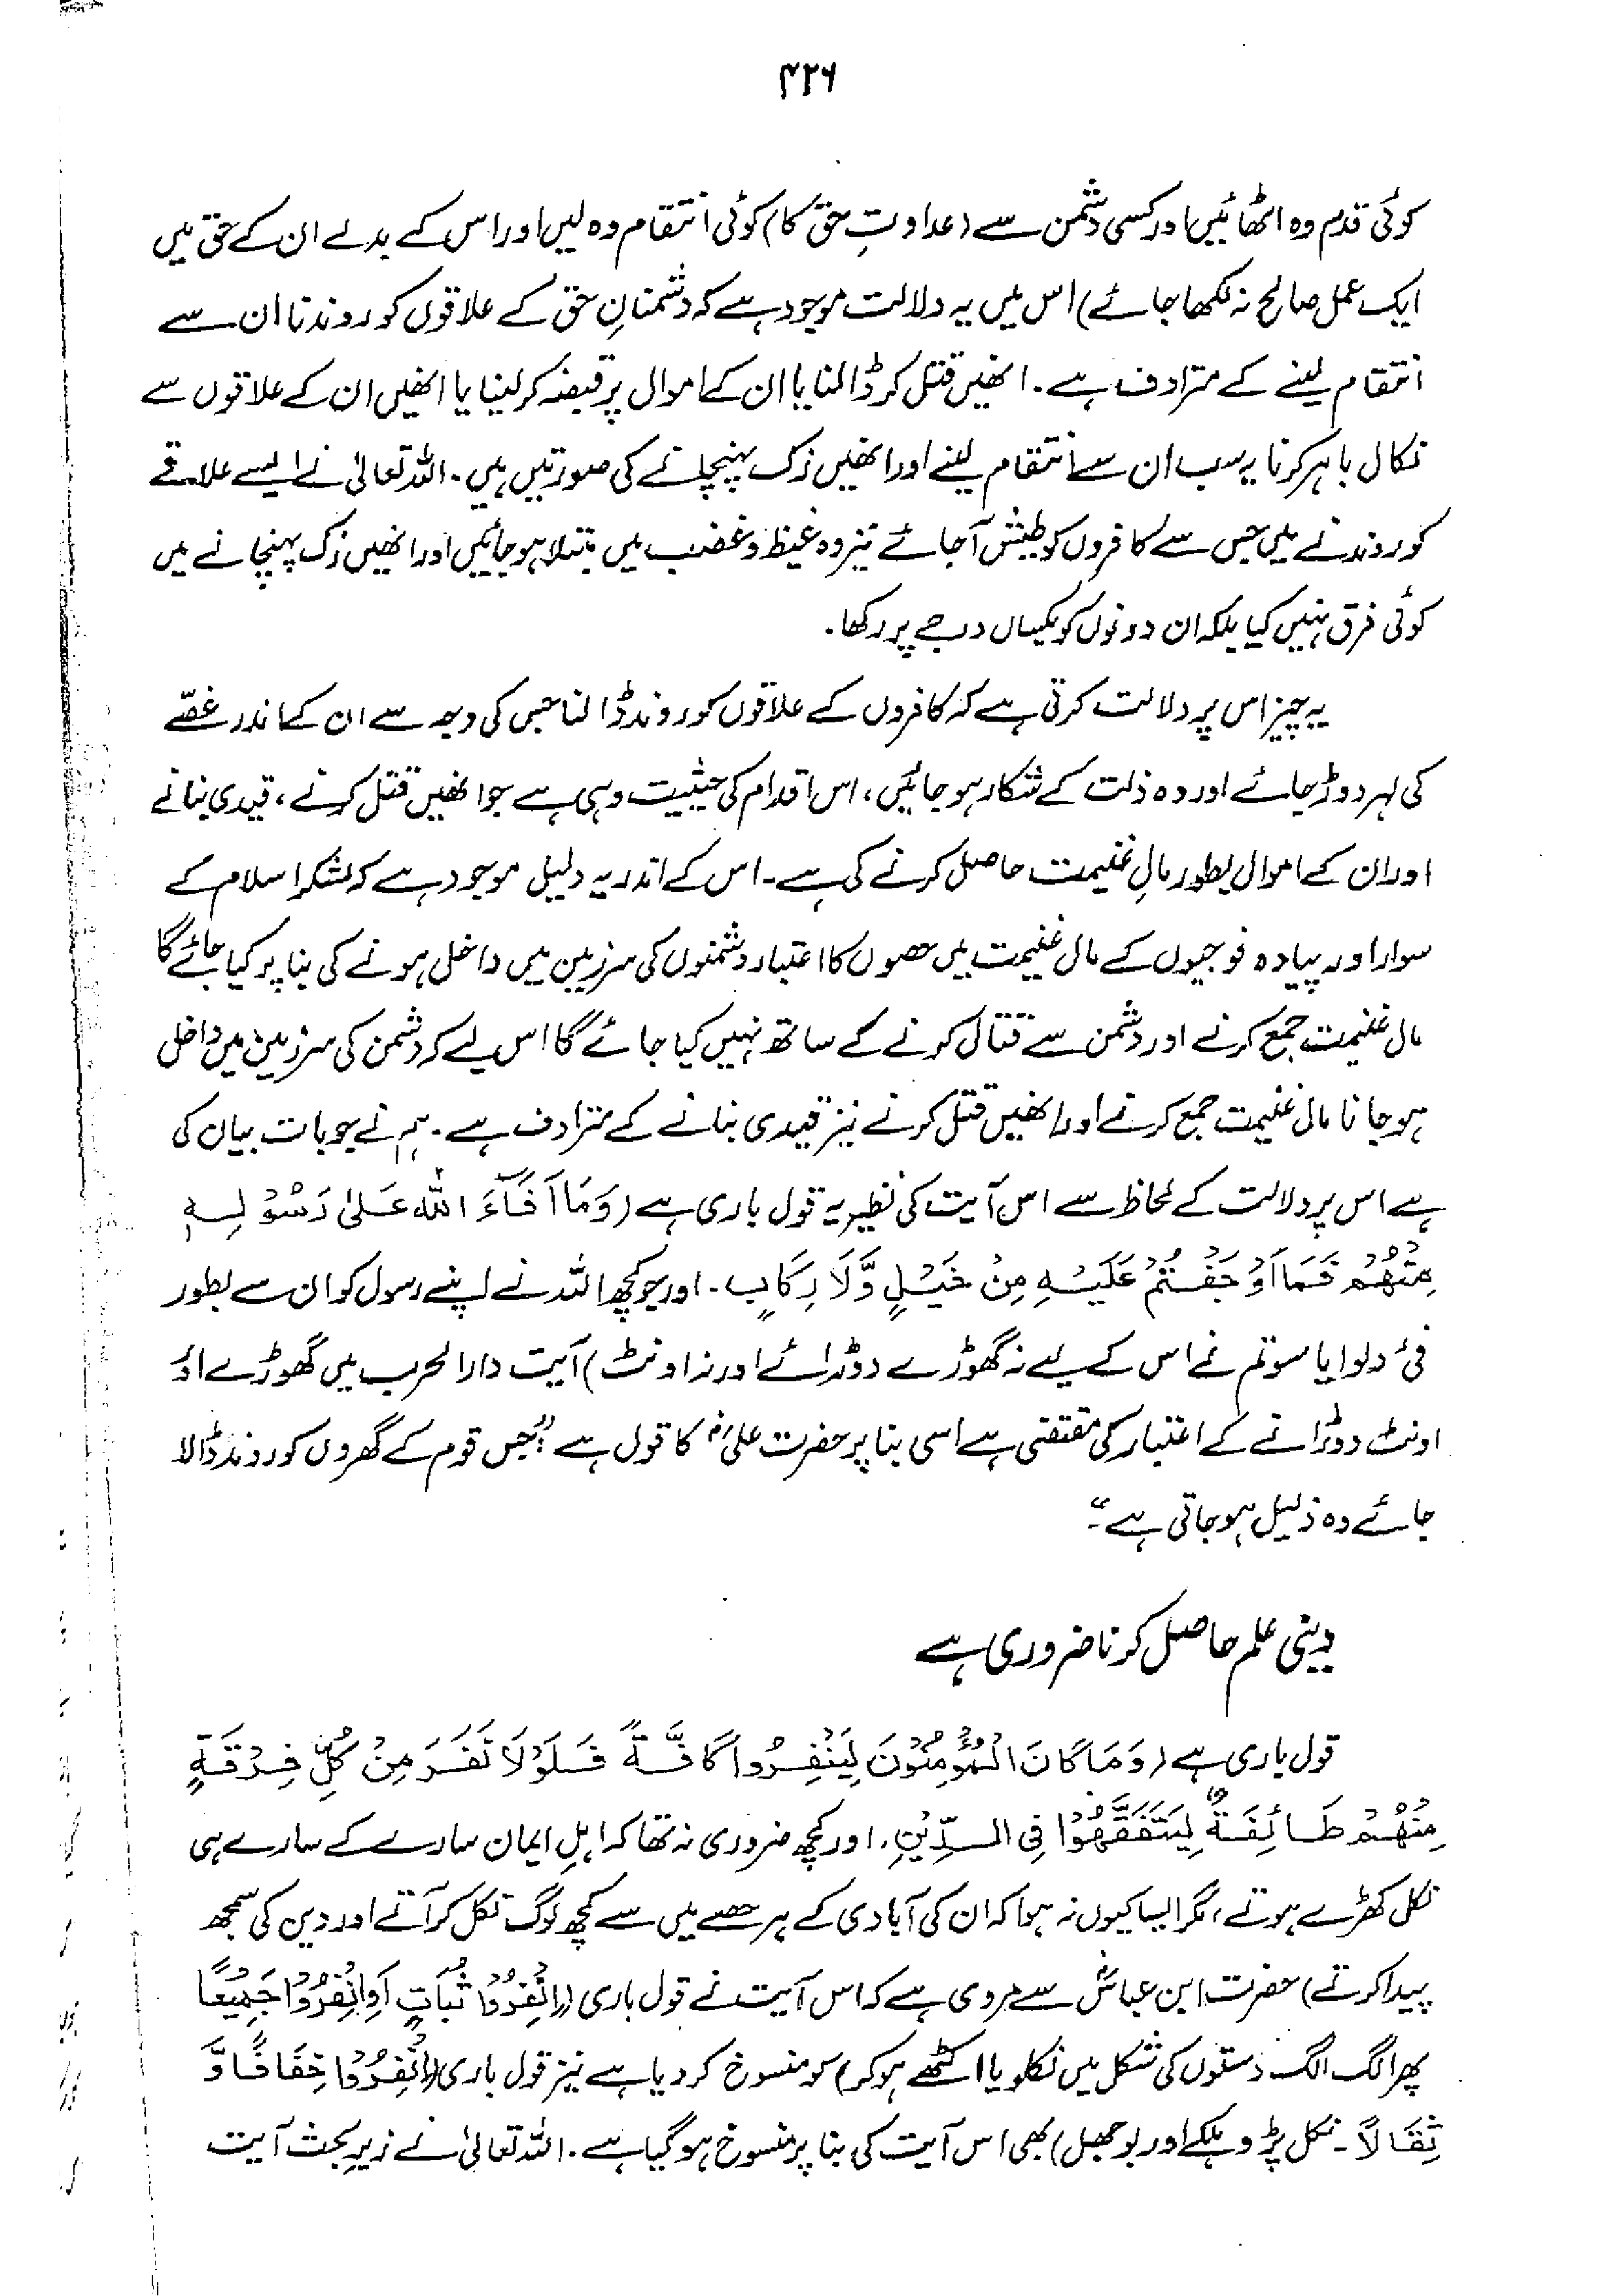 ۴۲۶
کوئی قدم وہ اٹھائیں اور کسی دشمن سے (عداوتِ حق کا) کوئی انتقام وہ لیں اور اس کے بدلے ان کے حق میں
ایک عمل صالح نہ لکھا جائے) اس میں یہ دلالت موجود ہے کہ دشمنانِ حق کے علاقوں کو روندنا ان سے
انتقام لینے کے مترادف ہے۔ انھیں قتل کر ڈالنا یا ان کے اموال پر قبضہ کر لینا یا انھیں ان کے علاقوں سے
نکال باہر کرنا یہ سب ان سے انتقام لینے اور انھیں زک پہنچانے کی صورتیں ہیں۔ اللہ تعالیٰ نے ایسے علاقے
کو روندنے میں جس سے کافروں کو طیش آ جائے نیز وہ غیظ و غضب میں مبتلا ہو جائیں اور انھیں زک پہنچانے میں
کوئی فرق نہیں کیا بلکہ ان دونوں کو یکساں درجے پر رکھا۔
یہ چیز اس پر دلالت کرتی ہے کہ کافروں کے علاقوں کو روند ڈالنا جس کی وجہ سے ان کے اندر غصّے
کی لہر دوڑ جائے اور وہ ذلت کے شکار ہو جائیں، اس اقدام کی حیثیت وہی ہے جو انھیں قتل کرنے، قیدی بنانے
اور ان کے اموال بطور مالِ غنیمت حاصل کرنے کی ہے۔ اس کے اندر یہ دلیل موجود ہے کہ لشکر اسلام کے
سوار اور پیادہ فوجیوں کے مال غنیمت میں حصوں کا اعتبار دشمنوں کی سرزمین میں داخل ہونے کی بنا پر کیا جائے گا
مال غنیمت جمع کرنے اور دشمن سے قتال کرنے کے ساتھ نہیں کیا جائے گا اس لیے کہ دشمن کی سرزمین میں داخل
ہو جانا مال غنیمت جمع کرنے اور انھیں قتل کرنے نیز قیدی بنانے کے مترادف ہے۔ ہم نے جو بات بیان کی
ہے اس پر دلالت کے لحاظ سے اس آیت کی نظیر یہ قول باری ہے (وَمَا اَفَآءَ اللهُ عَلىٰ رَسُوْلِهِ
مِنْهُمْ فَمَا اَوْجَفْتُمْ عَلَيْهِ مِنْ خَيْلٍ وَّلَا رِكَابٍ۔ اور جو کچھ اللہ نے اپنے رسول کو ان سے بطور
فیٔ دلوایا سو تم نے اس کے لیے نہ گھوڑے دوڑائے اور نہ اونٹ) آیت دارالحرب میں گھوڑے اور
اونٹ دوڑانے کے اعتبار کی مقتضی ہے اسی بنا پر حضرت علیؓ کا قول ہے: "جس قوم کے گھروں کو روند ڈالا
جائے وہ ذلیل ہو جاتی ہے"۔
دینی علم حاصل کرنا ضروری ہے
قول باری ہے (وَمَا كَانَ الْمُؤْمِنُوْنَ لِيَنْفِرُوا كَافَّةً فَلَوْلَا نَفَرَ مِنْ كُلِّ فِرْقَةٍ
مِنْهُمْ طَائِفَةٌ لِيَتَفَقَّهُوْا فِى الدِّيْنِ۔ اور کچھ ضروری نہ تھا کہ اہلِ ایمان سارے کے سارے ہی
نکل کھڑے ہوتے، مگر ایسا کیوں نہ ہوا کہ ان کی آبادی کے ہر حصے میں سے کچھ لوگ نکل کر آتے اور دین کی سمجھ
پیدا کرتے) حضرت ابن عباسؓ سے مروی ہے کہ اس آیت نے قول باری (اِنْفِرُوْا ثُبَاتٍ اَوِ انْفِرُوْا جَمِيْعًا
پھر الگ الگ دستوں کی شکل میں نکلو یا اکٹھے ہو کر) کو منسوخ کر دیا ہے نیز قول باری (اِنْفِرُوْا خِفَافًا وَّ
ثِقَالًا۔ نکل پڑو ہلکے اور بوجھل) بھی اس آیت کی بنا پر منسوخ ہو گیا ہے۔ اللہ تعالیٰ نے زیرِ بحث آیت